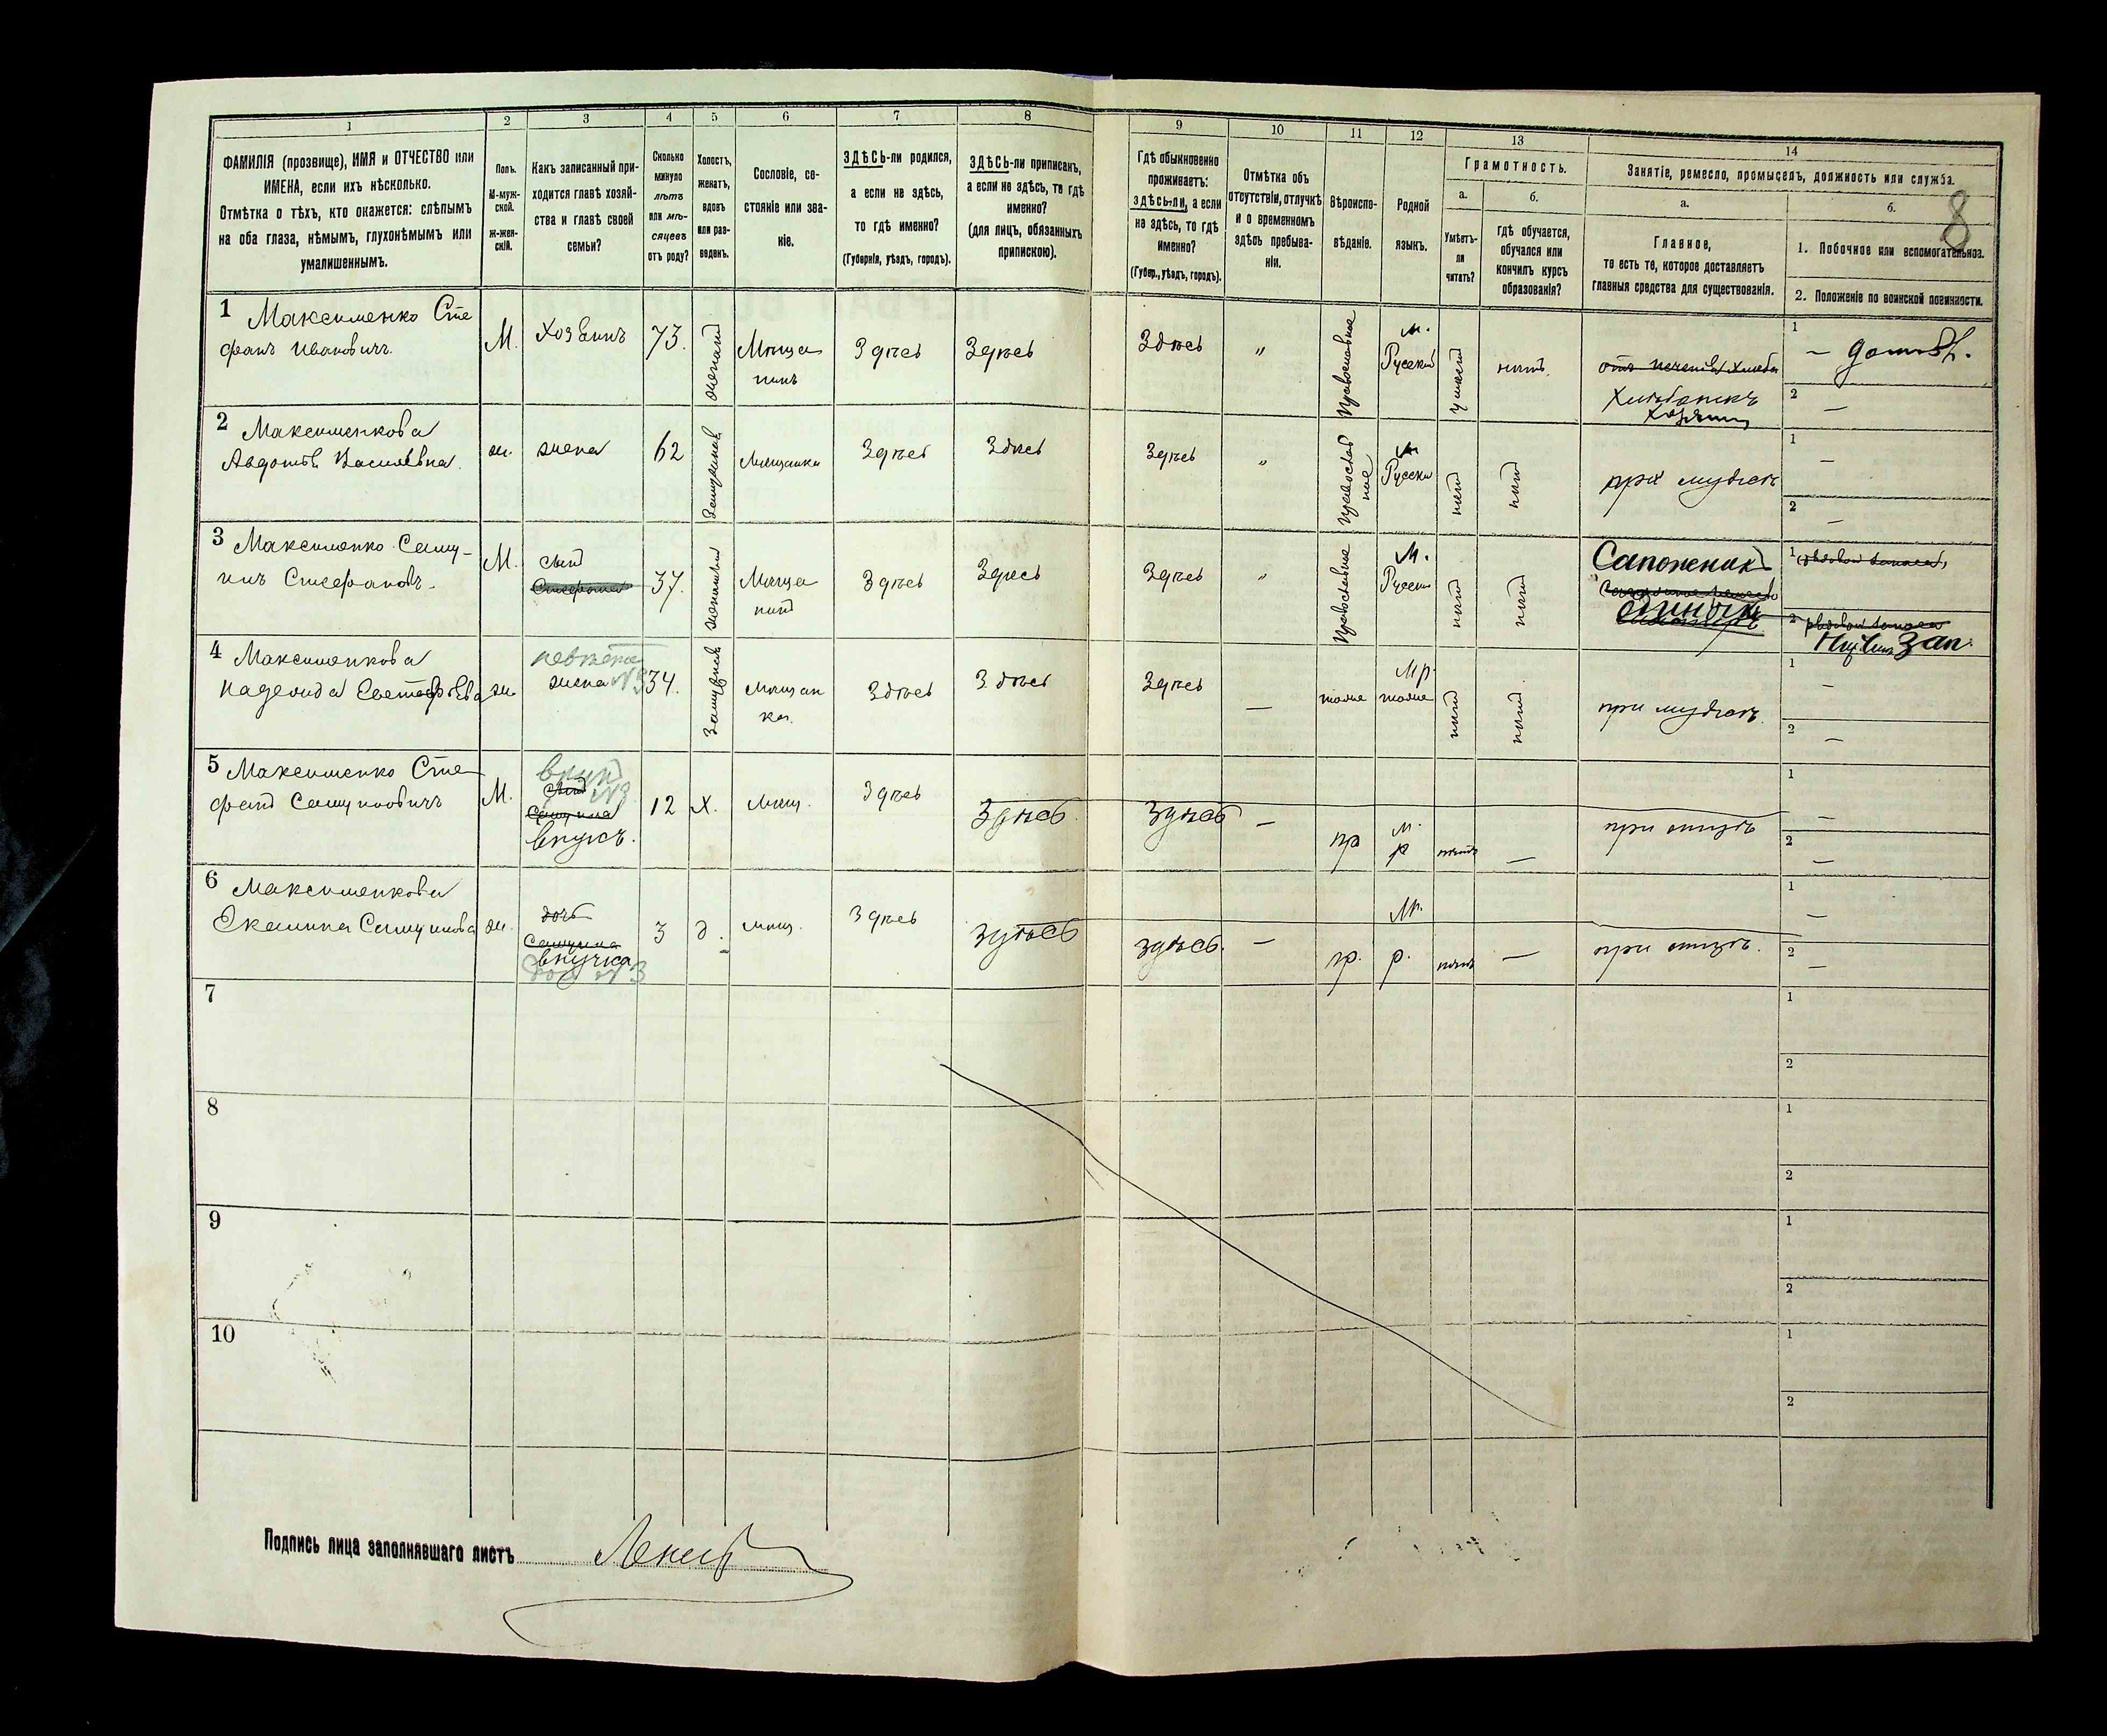 8
1 2 3 4 5 6 7 8 9 10 11 12 13 14
ФАМИЛІЯ (прозвище), ИМЯ и ОТЧЕСТВО или
ИМЕНА, если ихъ нѣсколько.
Отмѣтка о тѣхъ, кто окажется: слѣпымъ
на оба глаза, нѣмымъ, глухонѣмымъ или
умалишеннымъ.
Полъ.
М-муж-
ской.
Ж-жен-
скій.
Какъ записанный при-
ходится главѣ хозяй-
ства и главѣ своей
семьи?
Сколько
минуло
лѣтъ
или мѣ-
сяцевъ
отъ роду?
Холостъ,
женатъ,
вдовъ
или раз-
веденъ.
Сословіе, со-
стояніе или зва-
ніе.
ЗДѢСЬ-ли родился,
а если не здѣсь,
то гдѣ именно?
(Губернія, уѣздъ, городъ).
ЗДѢСЬ-ли приписанъ,
а если не здѣсь, то гдѣ
именно?
(для лицъ, обязанныхъ
припискою).
Гдѣ обыкновенно
проживаетъ:
здѣсь-ли, а если
не здѣсь, то гдѣ
именно?
(Губер., уѣздъ, городъ).
Отмѣтка объ
отсутствіи, отлучкѣ
и о временномъ
здѣсь пребыва-
ніи.
Вѣроиспо-
вѣданіе.
Родной
языкъ.
Грамотность.
а.
Умѣетъ-
ли
читать?
б.
гдѣ обучается,
обучался или
кончилъ курсъ
образованія?
Занятіе, ремесло, промыселъ, должность или служба.
а.
Главное,
то есть то, которое доставляетъ
главныя средства для существованія.
б.
1. Побочное или вспомогательное.
2. Положеніе по воинской повинности.
1 Максименко Сте
фанъ Ивановичъ
М.
Хозяинъ
73.
женатъ
Мѣща
нинъ
Здѣсь
Здѣсь
Здѣсь
"
Православное
м.
Русскій
умѣетъ
нѣтъ
отъ печенія хлѣба
Хлѣбникъ
хозяинъ
1 –
2 –
2 Максименкова
Авдотья Васильевна
ж.
жена
62
Замужняя
Мѣщанка
Здѣсь
Здѣсь
Здѣсь
"
Православ
ное
м
Русскій
нѣтъ
нѣтъ
при мужѣ
1 –
2 –
3 Максименко
Стефановъ
М.
сынъ
37.
женатъ
Мѣща
нинъ
Здѣсь
Здѣсь
Здѣсь
"
Православное
М.
Русскій
нѣтъ
нѣтъ
Сапожникъ
одиночка
1
2
зап.
4 Максименкова
Надежда
ж.
невѣстка
жена №3
34.
Замужняя
Мѣщан
ка
Здѣсь
Здѣсь
Здѣсь
—
тоже
Мр.
тоже
нѣтъ
нѣтъ
при мужѣ
1 –
2 –
5 Максименко Сте
фанъ
М.
внукъ
сынъ №3
внукъ.
12
х.
мѣщ.
Здѣсь
Здѣсь
Здѣсь
—
пр
м.
р
нѣтъ
—
при отцѣ
1 –
2 –
6 Максименкова
ж.
дочь
внучка
доч №3
3
д.
мѣщ.
Здѣсь
здѣсь
здѣсь.
—
пр.
Мр.
р.
нѣтъ
—
при отцѣ.
1 –
2 –
7 1
2
8 1
2
9 1
2
10 1
2
Подпись лица заполнявшаго листъ